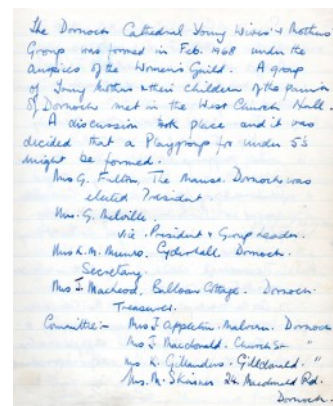 The Dornoch Cathedral Young Wives & Mothers
Group was formed in Feb. 1968 under the
auspices of the Women's Guild. A group
of Young Mothers & their children of the parish
of Dornoch met in the West Church Hall.
A discussion took place and it was
decided that a Playgroup for under 5's
might be formed.
Mrs G. Fulton, The Manse. Dornoch was
elected President.
Mrs. G. Melville.
Vice-President & Group Leader.
Mrs K. M. Munro, Cyderhall Dornoch.
Secretary.
Mrs J. MacLeod, Balloan Cottage. Dornoch.
Treasurer.
Committee:- Mrs J Malvern. Dornoch
Mrs J. Macdonald. Church St. "
Mrs K. Gillanders. "
Mrs. M. Skinner 24. Macdonald Rd.
Dornoch.